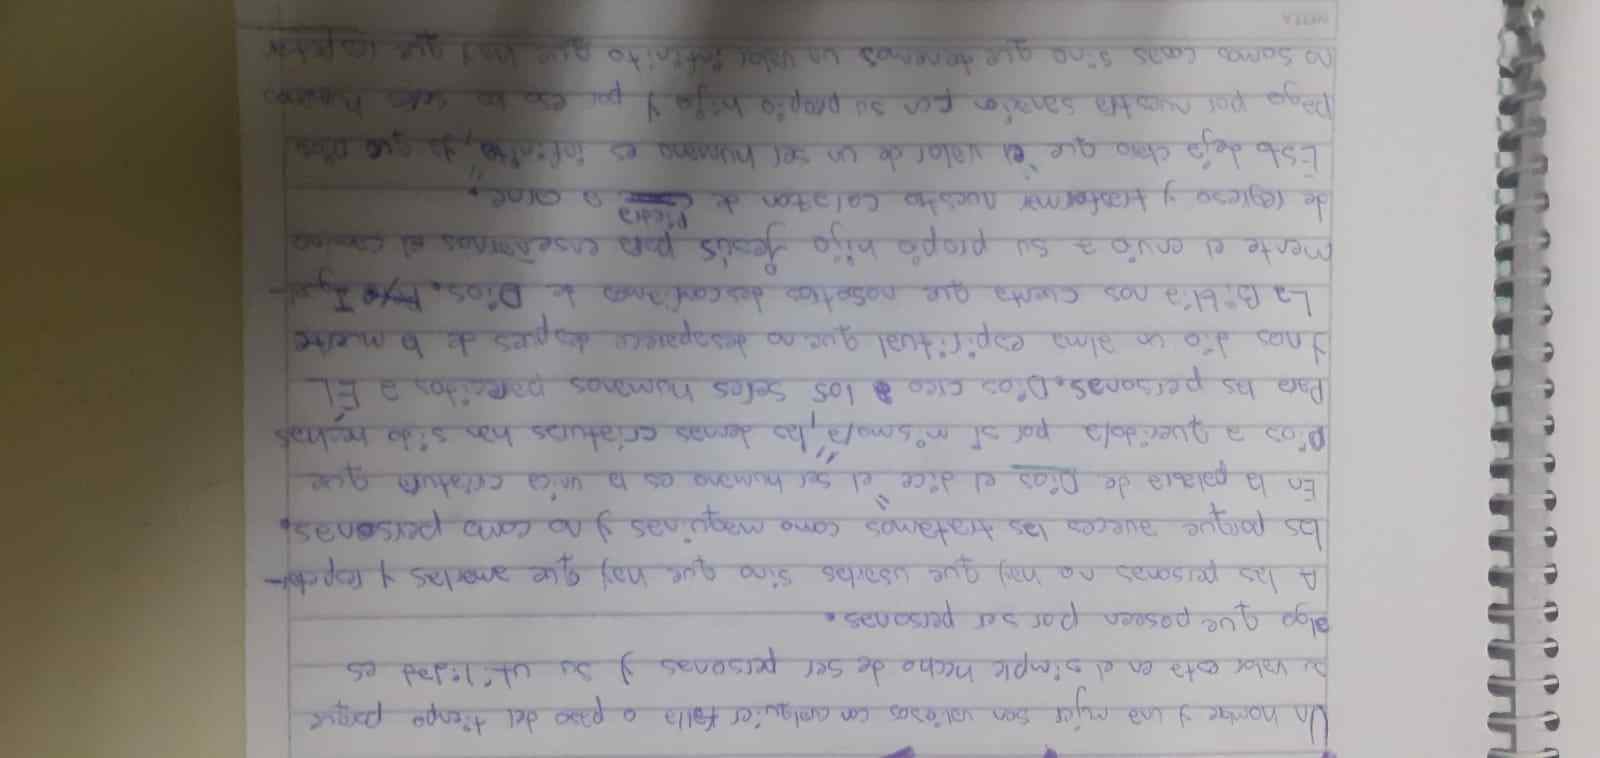 Un hombre y una mujer son valiosos con cualquier falla o paso del tiempo porque
su valor esta en el simple hecho de ser personas y su utilidad es
algo que poseen por ser personas.
A las personas no hay que usarlas sino que hay que amarlas y respetar-
las porque aveces las tratamos como maquinas y no como personas.
En la palabra de Dios el dice "el ser humano es la unica criatura que
Dios a querido/a por sí mismo/a, las demas criaturas han sido hechas
Para las personas. Dios creo a los seres humanos parecidos a ÉL
y nos dio un alma espiritual que no desaparece despues de la muerte
La Biblia nos cuenta que nosotros desconfiamos de Dios. Igual-
mente el envio a su propio hijo Jesús para enseñarnos el camino
de regreso y trasformar nuestro corazon de Piedra a carne."
Esto deja claro que "el valor de un ser humano es infinito", ya que Dios
pago por nuestra sanacion con su propio hijo y por eso los seres humanos
no somos cosas sino que tenemos un valor infinito que hay que respetar
NOTEA